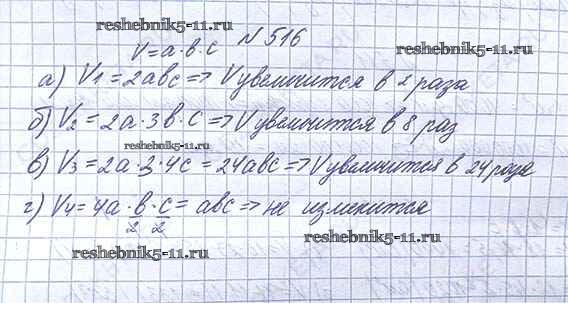 reshebnik5-11.ru
V=a·в·c № 516
reshebnik5-11.ru
а) V1 = 2aвc => V увеличится в 2 раза
б) V2 = 2a·3в·c => V увеличится в 8 раз
reshebnik5-11.ru
в) V3 = 2a·3·4c = 24aвc => V увеличится в 24 раза
г) V4 = 4a·в/2·c/2 = aвc => не изменится
reshebnik5-11.ru
reshebnik5-11.ru